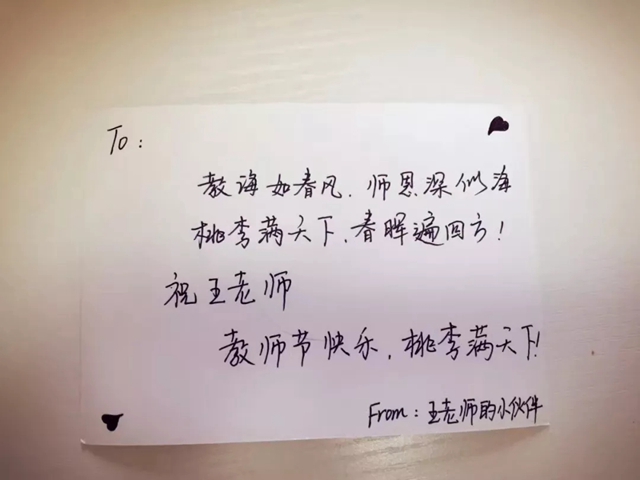 To：
教诲如春风，师恩深似海
桃李满天下，春晖遍四方！
祝王老师
教师节快乐，桃李满天下！
From：王老师的小伙伴